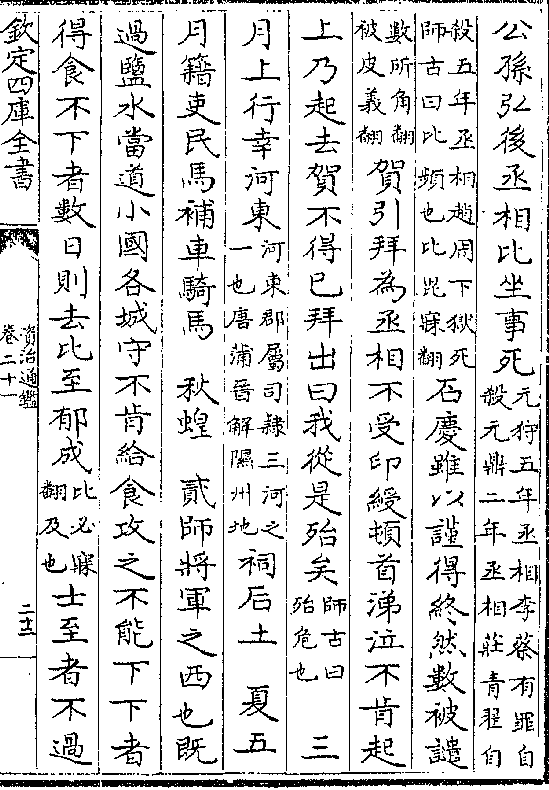 公孫弘後丞相比坐事死元狩五年丞相李蔡有罪自殺元鼎二年丞相莊青翟自
殺五年丞相趙周下獄死師古曰比頻也比毘寐翻石慶雖以謹得終然數被譴
數所角翻被皮義翻賀引拜為丞相不受印綬頓首涕泣不肯起
上乃起去賀不得已拜出曰我從是殆矣師古曰殆危也　三
月上行幸河東河東郡屬司隸三河之一也唐蒲晉解隰州地祠后土　夏五
月籍吏民馬補車騎馬　秋蝗　貳師將軍之西也既
過鹽水當道小國各城守不肯給食攻之不能下下者
得食不下者數日則去比至郁成比必寐翻及也士至者不過
欽定四庫全書
資治通鑑
卷二十一
二十三